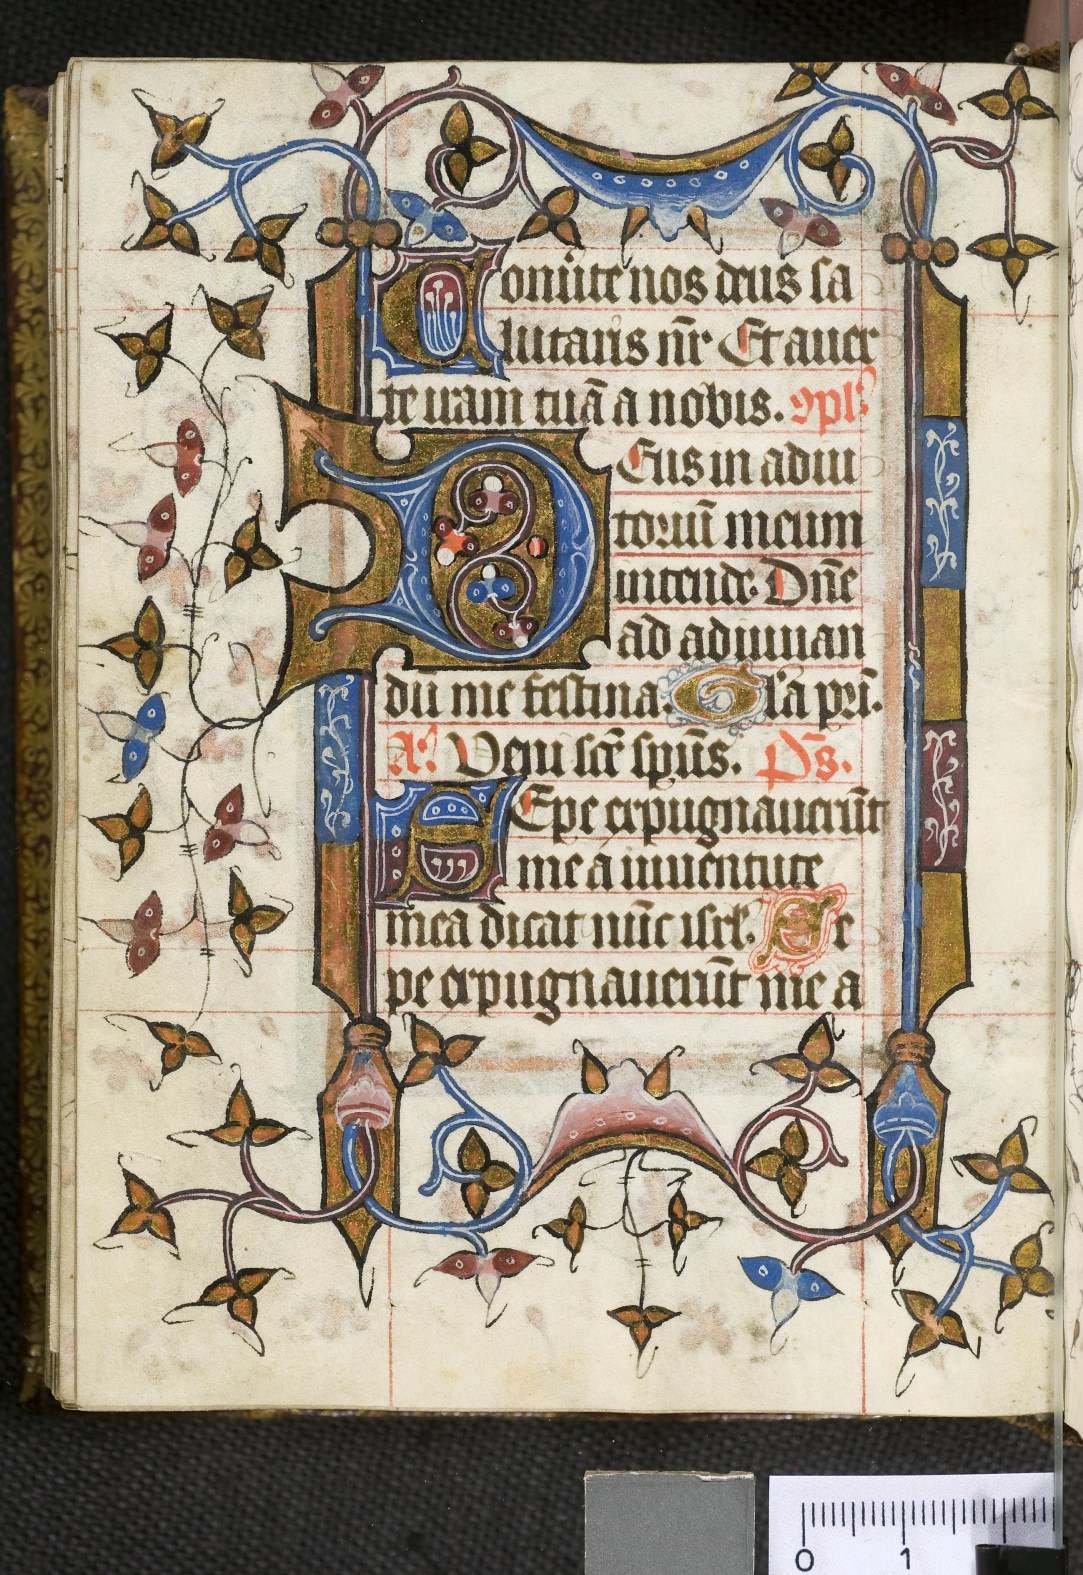 Conűte nos deus sa
lutaris nr̄ Et auer
te iram tuā a nobis. 9pl'
DEus in adiu
toriū meum
intende. Dn̄e
ad adiuuan
dū me festina. Gl'a pri.
A' Veni scē spūs. P̄s.
SEpe expugnauerūt
me a iuuentute
mea dicat nūc isrl'. Se
pe expugnauerūt me a
0 1